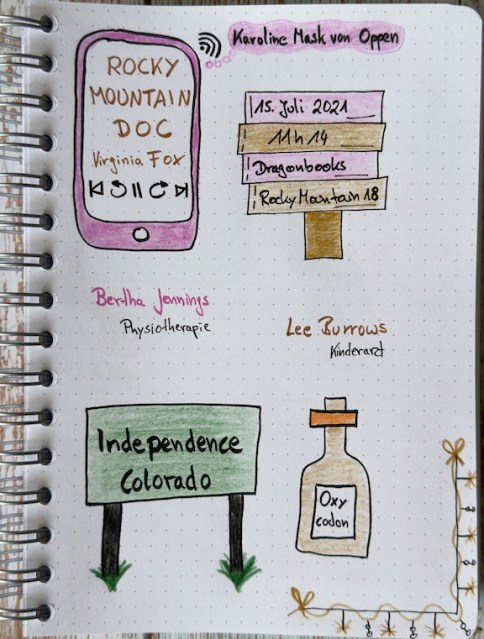 Karoline Mask von Oppen
ROCKY
MOUNTAIN
DOC
Virginia Fox
15. Juli 2021
11h 14
Dragonbooks
Rocky Mountain 18
Bertha Jennings
Physiotherapie
Lee Burrows
Kinderarzt
Independence
Colorado
Oxy
codon